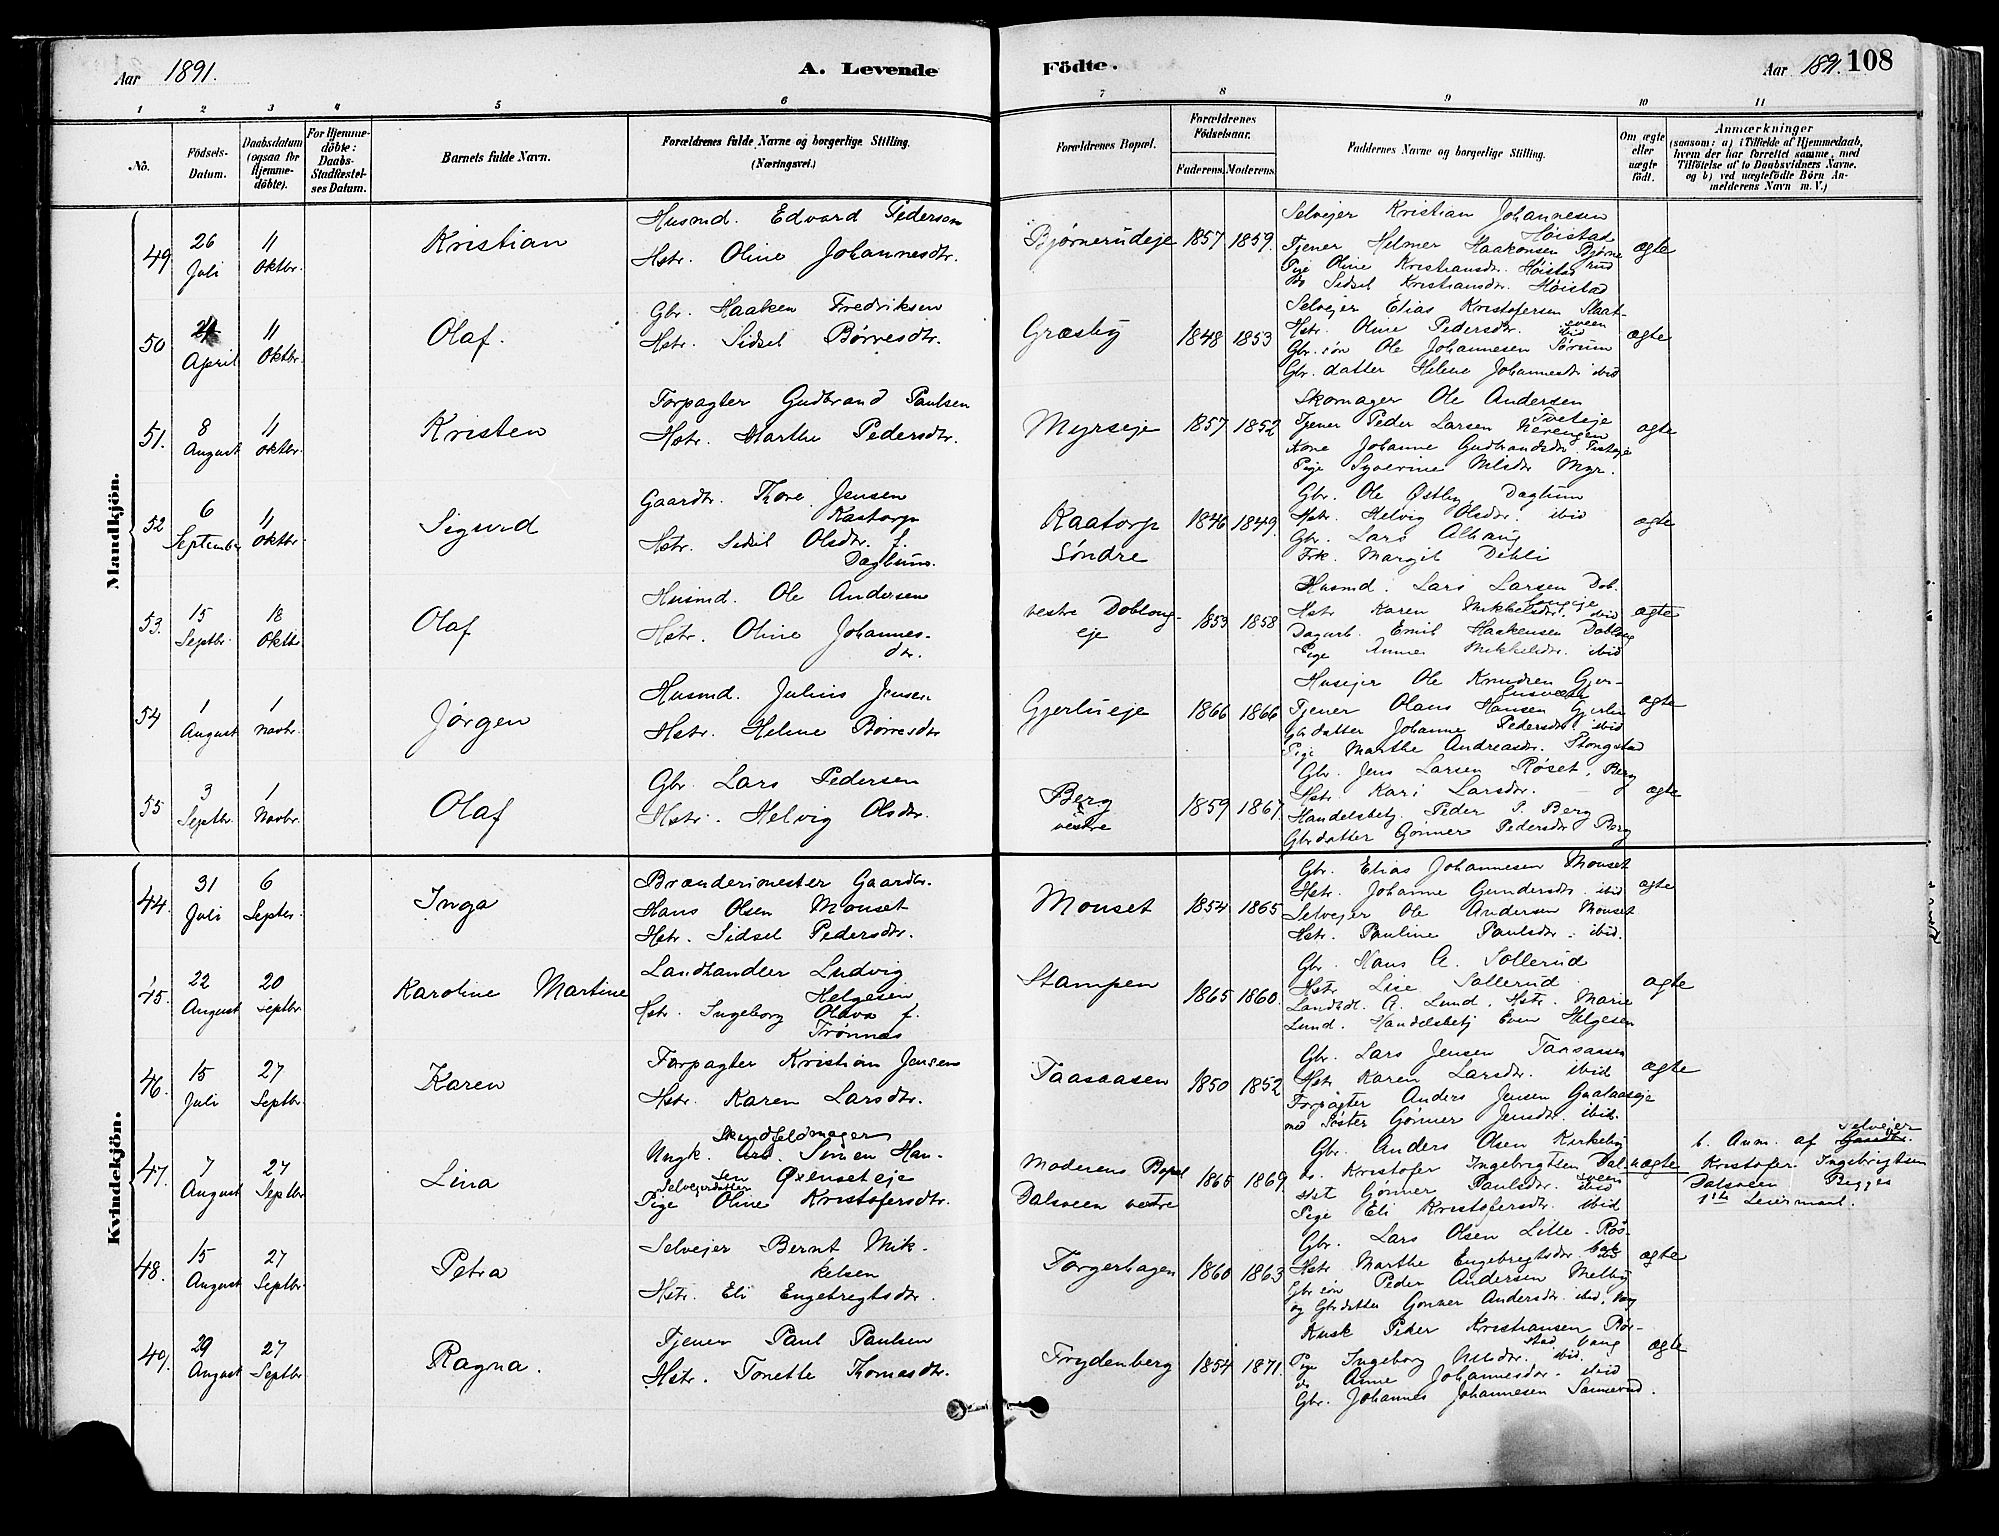 Aar 1891. A. Levende Födte. Aar 1891. 108
1 2 3 4 5 6 7 8 9 10 11
No. Födsels-Datum. Daabsdatum (ogsaa for Hjemmedöbte). For Hjemmedöbte: Daabs-Stadfæstelses Datum. Barnets fulde Navn. Forældrenes fulde Navne og borgerlige Stilling. (Næringsvei.) Forældrenes Bopæl. Forældrenes Födselsaar. Faderens. Moderens. Faddernes Navne og borgerlige Stilling. Om ægte eller uægte födt. Anmærkninger (saasom: a) i Tilfælde af Hjemmedaab, hvem der har forrettet samme, med Tilföielse af to Daabsvidners Navne. og b) ved uægtefödte Börn Anmelderens Navn m. V.)
Mandkjön.
49 26 Juli 11 Oktbr. Kristian
Husmd. Edvard Pedersen
Hstr. Oline Johannesdtr.
Bjørnerudeje 1857 1859.
Selvejer Kristian Johannesen Høistad
Tjener Helmer Haakonsen Bjørnerud
Pige Oline Kristiansdr. Høistad
Ds Sidsel Kristiansdr. Høistad
ægte
50 April 11 Oktbr. Olaf.
Gbr. Haaken Fredriksen
Hstr. Sidsel Børresdtr.
Græsby 1848 1853
Selvejer Elias Kristofersen Slaatsveen
Hstr. Oline Pedersdtr. ibid
Gbr. søn Ole Johannesen Sørum
Gbr. datter Helene Johannesdr ibid
ægte
51. 8 August 11 Oktbr. Kristen
Forpagter Gudbrand Paulsen
Hstr. Marthe Pedersdtr.
Myrseje 1857 1852
Skomager Ole Andersen
Tjener Peder Larsen Nerengen
Kone Johanne Gudbrandsdr.
Pige Syverine Nilsdr Myr.
ægte
52 6 September 11 Oktbr. Sigurd
Gaardbr. Thore Jensen Kaatorp
Hstr. Sidsil Olsdtr. f. Dagbum.
Kaatorp Søndre 1846 1849.
Gbr. Ole Østby, Daglum
Hstr. Helvig Olsdtr. ibid
Gbr. Lars Alhaug
Frk. Margit Dobli
ægte
53. 15 Septbr. 18 Oktbr. Olaf
Husmd. Ole Andersen
Hstr. Oline Johannesdtr.
vestre Doblougeje 1853 1858
Husmd. Lars Larsen Doblougeje
Hstr. Karen Mikkelsdtr. ibid
Dagarb. Emil Haakensen Doblong
Pige Anne Mikkelsdr. ibid
ægte
54 1 August 1 Novbr. Jørgen
Husmd. Julius Jensen
Hstr. Helene Børresdtr
Gjerlueje 1866 1866
Husejer Ole Knudsen
Tjener Olaus Hansen Gjerlu
Gbrdatter Johanne Pedersdtr. ibid
Pige Marthe Andreasdr. Stongstad
ægte
55 3 Septbr. 1 Novbr. Olaf
Gbr. Lars Pedersen
Hstr. Helvig Olsdtr.
Berg vestre 1859 1867.
Gbr. Jens Larsen Røset, Berg
Hstr. Kari Larsdr.
Handelsbetj. Peder P. Berg
Gbrdatter Gønner Pedersdtr Berg
ægte
Kvindekjön.
44. 31 Juli 6 Septbr. Inga
Brænderimester Gaardbr.
Hans Olsen Monset
Hstr. Sidsel Pedersdtr.
Monset 1854 1865
Gbr. Elias Johannesen Monset
Hstr. Johanne Gundersdtr. ibid
Selvejer Ole Andersen Monset
Hstr. Pauline Paulsdtr. ibid.
ægte
45. 22 August 20 Septbr. Karoline Martine
Landhandler Ludvig Helgesen
Hstr. Ingeborg Olava f. Trønnes
Stampen 1865 1860.
Gbr. Hans A. Sollerud
Hstr. Lise Sollerud
Landhdl. A. Lund. Hstr. Marie
Lund. Handelsbetj Even Helgesen
ægte
46. 15 Juli 27 Septbr. Karen
Forpagter Kristian Jensen
Hstr. Karen Larsdtr.
Taasaasen 1850 1852
Gbr. Lars Jensen Taasaasen
Hstr Karen Larsdtr. ibid
Forpagter Anders Jensen Gaalaaseje
med Søster Gønner Jensdtr. ibid.
ægte
47. 7 August 27 Septbr. Lina
Skindfeldmager
Ungk. Simen Hansen Øxenseteje
Selvejerdatter
Pige Oline Kristofersdtr.
Moderens Bopæl Dalsveen vestre 1865 1869.
Gbr. Anders Olsen Kirkeby
Kristofer Ingebrigtsen Dalsveen
Gønner Paulsdtr. ibid
Pige Eli Kristofersdtr. ibid
uægte
b. Anm. af Selvejer
Kristofer Ingebrigtsen
Dalsveen Begges
1ste Leiermaal.
48. 15 August 27 Septbr. Petra
Selvejer Bernt Mikkelsen
Hstr. Eli Engebregtsdtr.
Torgerhagen 1860 1863
Gbr. Lars Olsen Lille
Hstr Marthe Engebregtsdtr ibid
Gbr søn Peder Andersen Melby
og Gbrdatter Gønner Andersdtr. ibid, Vang
ægte
49. 29 August 27 Septbr Ragna.
Tjener Paul Paulsen
Hstr. Tonette Thomasdtr.
Frydenberg 1854 1871.
Kusk Peder Kristiansen Rørstad Vang
Pige Ingeborg Olsdr. ibid.
ds Anne Johannesdtr. ibid
Gbr. Johannes Johannesen Samserud.
ægte